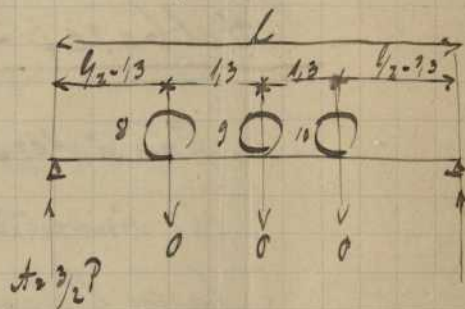 l
l/2-1,3 1,3 1,3 l/2-1,3
8 9 10
P P P
A = 3/2 P